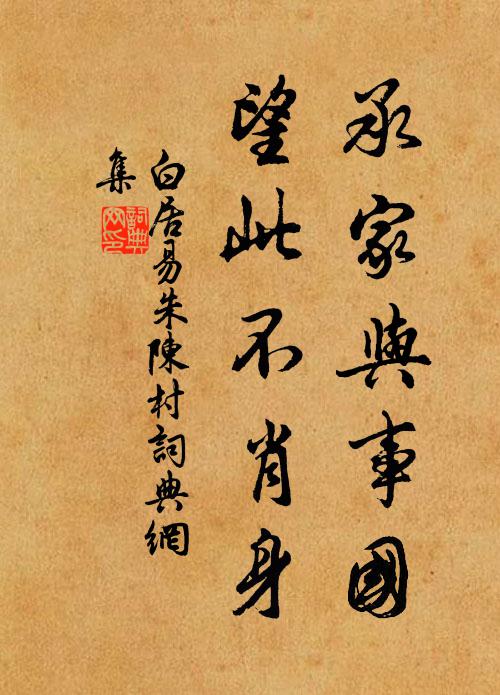 承家與事國
望此不肖身
白居易朱陳村詞典網
集
詞典
网印